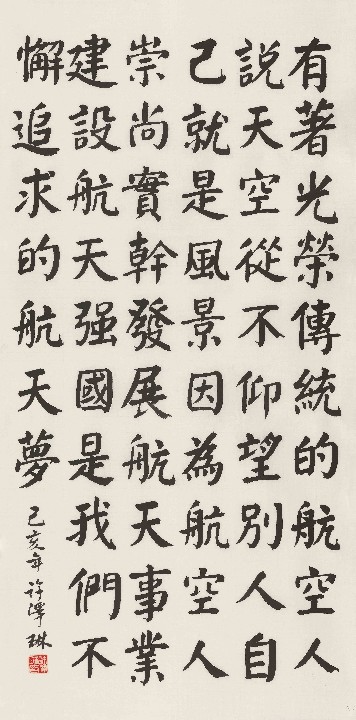 有著光榮傳統的航空人
說天空從不仰望別人自
己就是風景因為航空人
崇尚實幹發展航天事業
建設航天强國是我們不
懈追求的航天夢
己亥年許澤琳